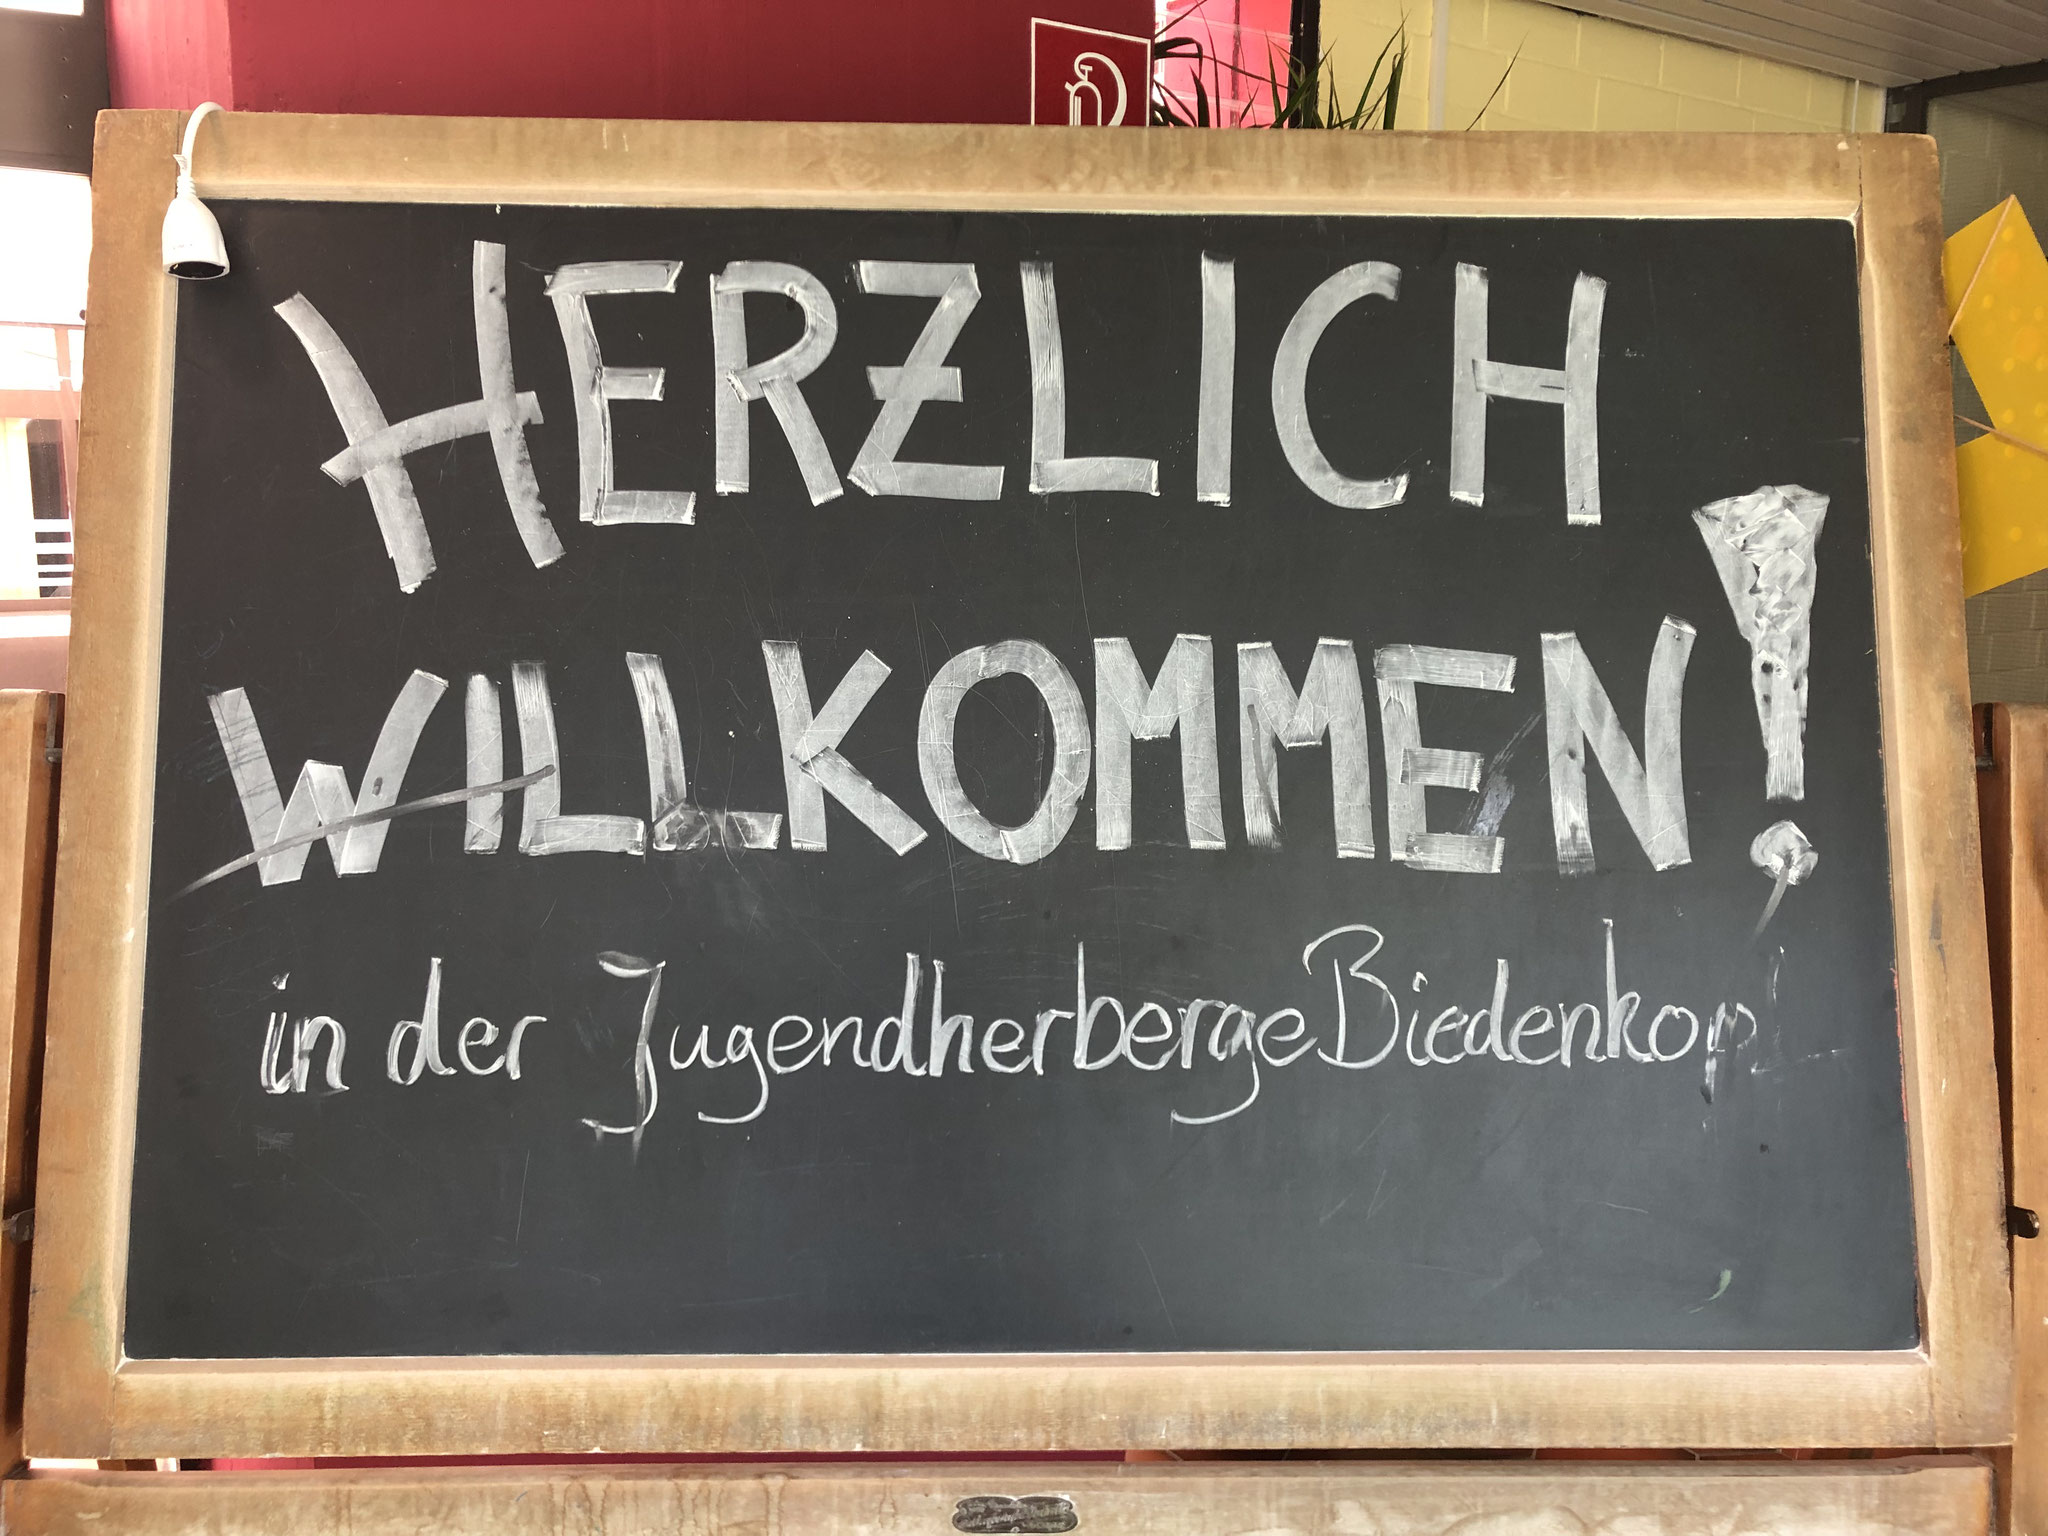 HERZLICH
WILLKOMMEN!
in der Jugendherberge Biedenkop